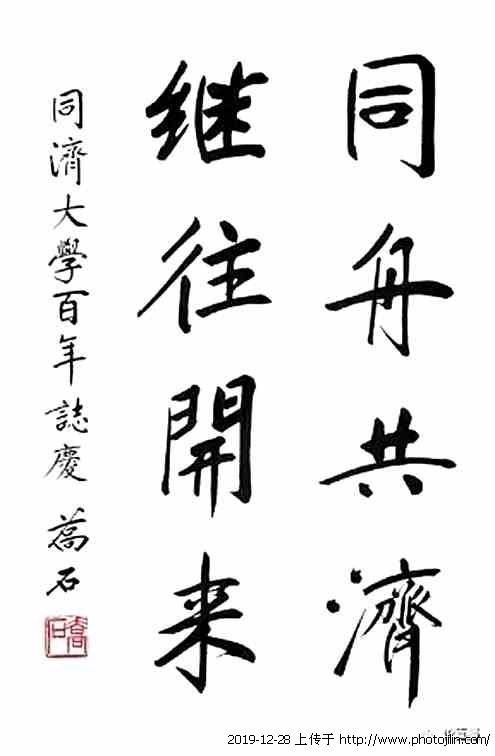 同舟共濟
继往開来
同濟大學百年誌慶 蒿石
2019-12-28 上传于 http://www.photojilin.com/